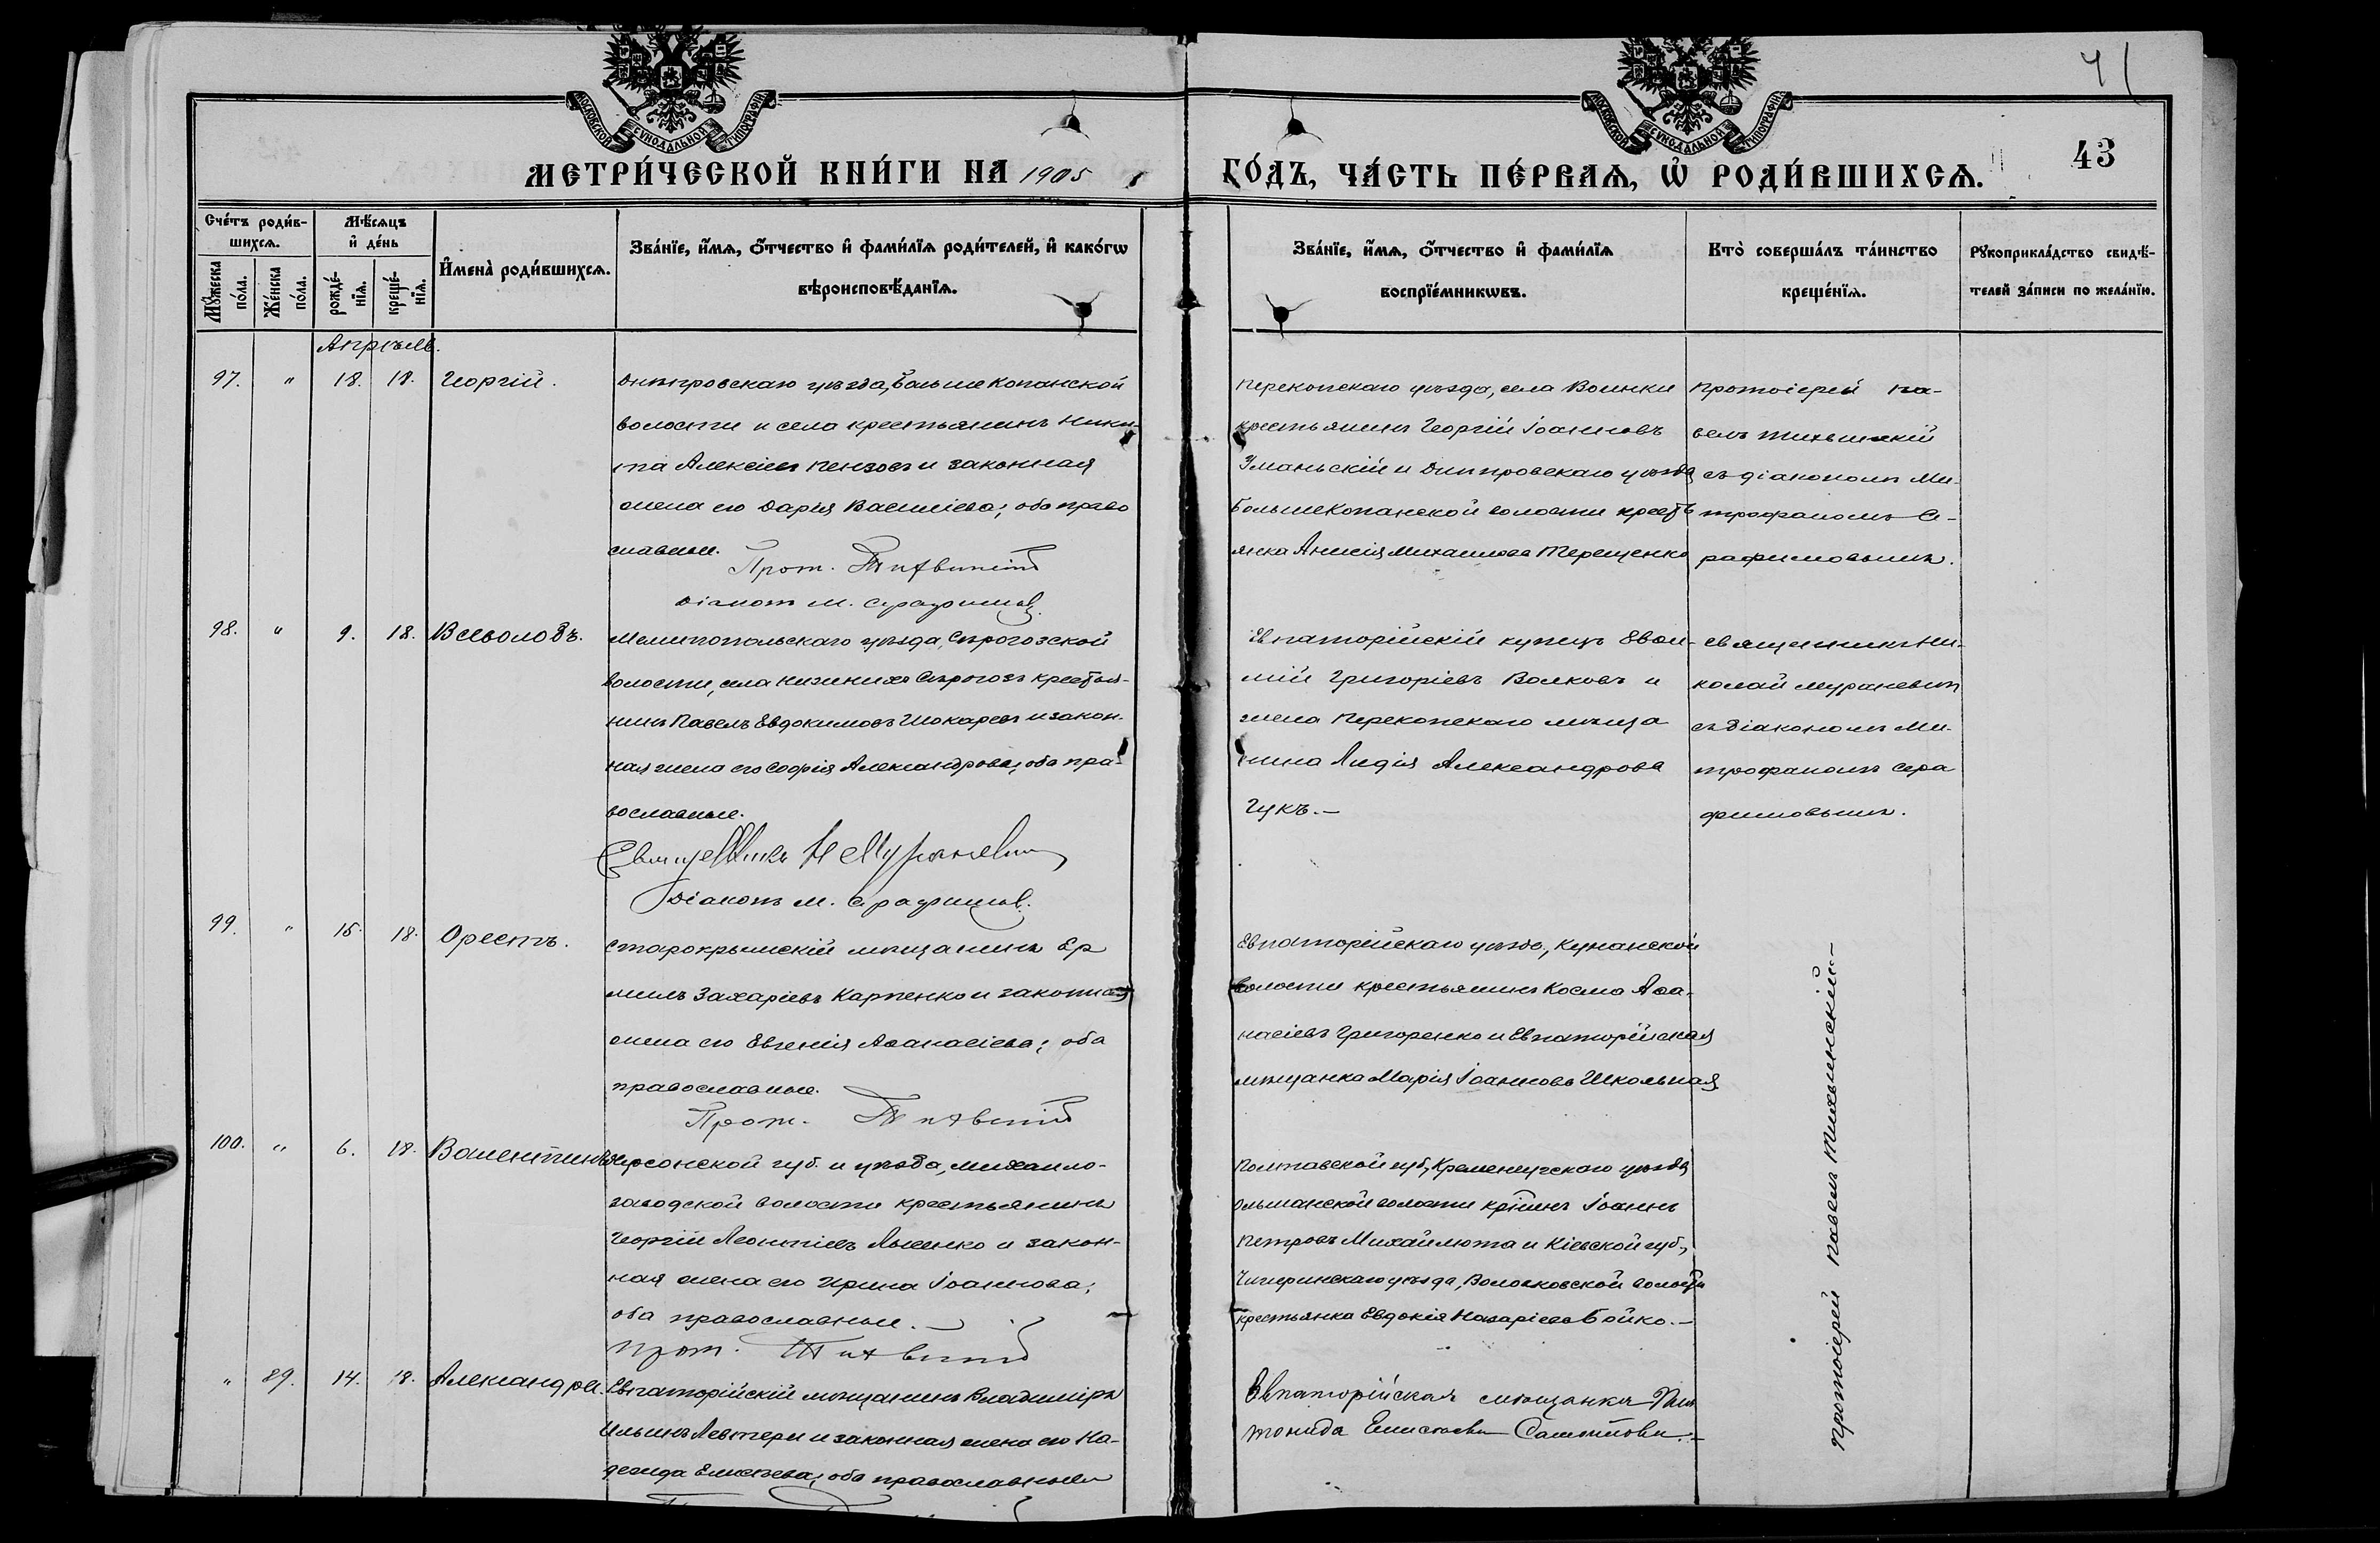 41
43
МОСКОВСКОЙ СѴНОДАЛЬНОЙ ТИПОГРАФІИ
МОСКОВСКОЙ СѴНОДАЛЬНОЙ ТИПОГРАФІИ
МЕТРИ́ЧЕСКОЙ КНИ́ГИ НА 1905 ГО́ДЪ, ЧА́СТЬ ПЕ́РВАѦ, Ѡ҆ РОДИ́ВШИХСѦ.
Сче́тъ роди́в-
шихсѧ.
Мꙋ́жеска по́ла.
Же́нска по́ла.
Мѣ́сѧцъ
и҆ де́нь
рожде́-
нїѧ.
креще́-
нїѧ.
И҆мена̀ роди́вшихсѧ.
Зва́нїе, и҆́мѧ, ѻ҆́тчество и҆ фами́лїѧ роди́телей, и҆ како́гѡ
вѣроисповѣ́данїѧ.
Зва́нїе, и҆́мѧ, ѻ҆́тчество и҆ фами́лїѧ
воспрїе́мникѡвъ.
Кто̀ соверша́лъ та́инство
креще́нїѧ.
Рꙋкоприкла́дство свидѣ́-
телей за́писи по жела́нїю.
Апрѣль.
97. " 18. 18. Георгій.
Днѣпровскаго уѣзда, Больше Копанской
волости и села крестьянинъ Ники-
та Алексіевъ Пензовъ и законная
жена его Дарія Василіева; оба право
славные.
Прот. Тихвинскій
Діаконъ М. Серафимов.
Перекопскаго уѣзда, села Воинки
крестьянинъ Георгій Іоанновъ
Уманьскій и Днѣпровскаго уѣзда
Большекопанской волости кресть
янка Анисія Михаилова Терещенко
Протоіерей Па-
велъ Тихвинскій
съ діакономъ Ми-
трофаномъ Се-
рафимовымъ.
98. " 9. 18. Всеволодъ.
Мелитопольскаго уѣзда, Сѣрогозской
волости, села Нижнихъ Сѣрогозъ крестья-
нинъ Павелъ Евдокимовъ Шокаревъ и закон-
ная жена его Софія Александрова; оба пра-
вославные.
Священникъ Н Мураневич
Діаконъ М. Серафимов.
Евпаторійскій купецъ Евѳи-
мій Григоріевъ Волковъ и
жена Перекопскаго мѣща
нина Лидія Александрова
Гукъ.—
Священникъ Ни-
колай Мураневичъ
съ діакономъ Ми-
трофаномъ Сера
фимовымъ.
99. " 15. 18. Орестъ.
Старокрымскій мѣщанинъ Ер
милъ Захаріевъ Карпенко и законная
жена его Евгенія Аѳанасіева; оба
православные.
Прот. Тихвинскій
Евпаторійскаго уѣзда, Кунанской
волости крестьянинъ Косма Аѳа-
насіевъ Григоренко и Евпаторійская
мѣщанка Марія Іоаннова Школьная
100. " 6. 18. Валентинъ
Херсонской губ. и уѣзда, Михайло-
заводской волости крестьянинъ
Георгій Леонтіевъ Лысенко и закон-
ная жена его Ирина Іоаннова;
оба православные.—
Прот. Тихвинскій
Полтавской губ., Кременчугскаго уѣзда
волости кр-нинъ Іоаннъ
Петровъ Михайлюта и Кіевской губ.,
Чигиринскаго уѣзда, волости
крестьянка Евдокія Назаріева Бойко.—
Протоіерей Павелъ Тихвинскій.—
" 89. 14. 18. Александра.
Евпаторійскій мѣщанинъ Владиміръ
Ильинъ Левтеръ и законная жена его На-
дежда Елисѣева; оба православные
Евпаторійская мѣщанка